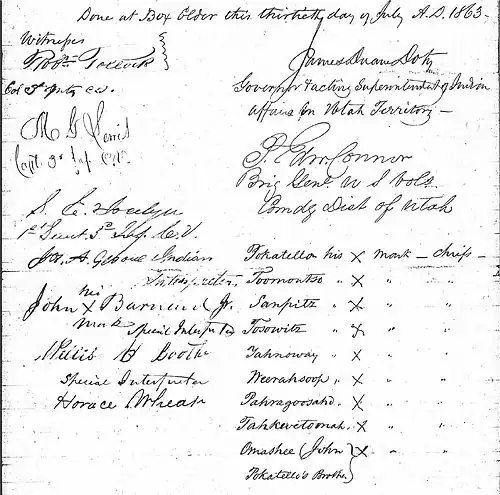 Done at Box Elder this thirtieth day of July A.D. 1863.
Witnesses
Robt. Pollock
Col 3d Infty C.V.
M. G. Lewis
Capt. 3d Inf. C.V.
S. E. Jocelyn
1st Lieut 3d Inf. C.V.
Jos. A. Gebow Indian
Interpreter
John his X mark Barnard Jr.
Special Interpreter
Willis H Boothe
Special Interpreter
Horace Wheat
James Duane Doty
Governor & acting Superintendent of Indian
affairs for Utah Territory —
P. Edw. Connor
Brig Genl. U S Vols.
Comdg Dist of Utah
Pokatello his X mark — chief —
Toomontso " X " "
Sanpitz " X " "
Tosowitz " X " "
Yahnoway " X " "
Weerahsoop " X " "
Pahragoosahd " X " "
Tahkevetoonah " X " "
Omashee (John) X " "
Pokatello's Brother